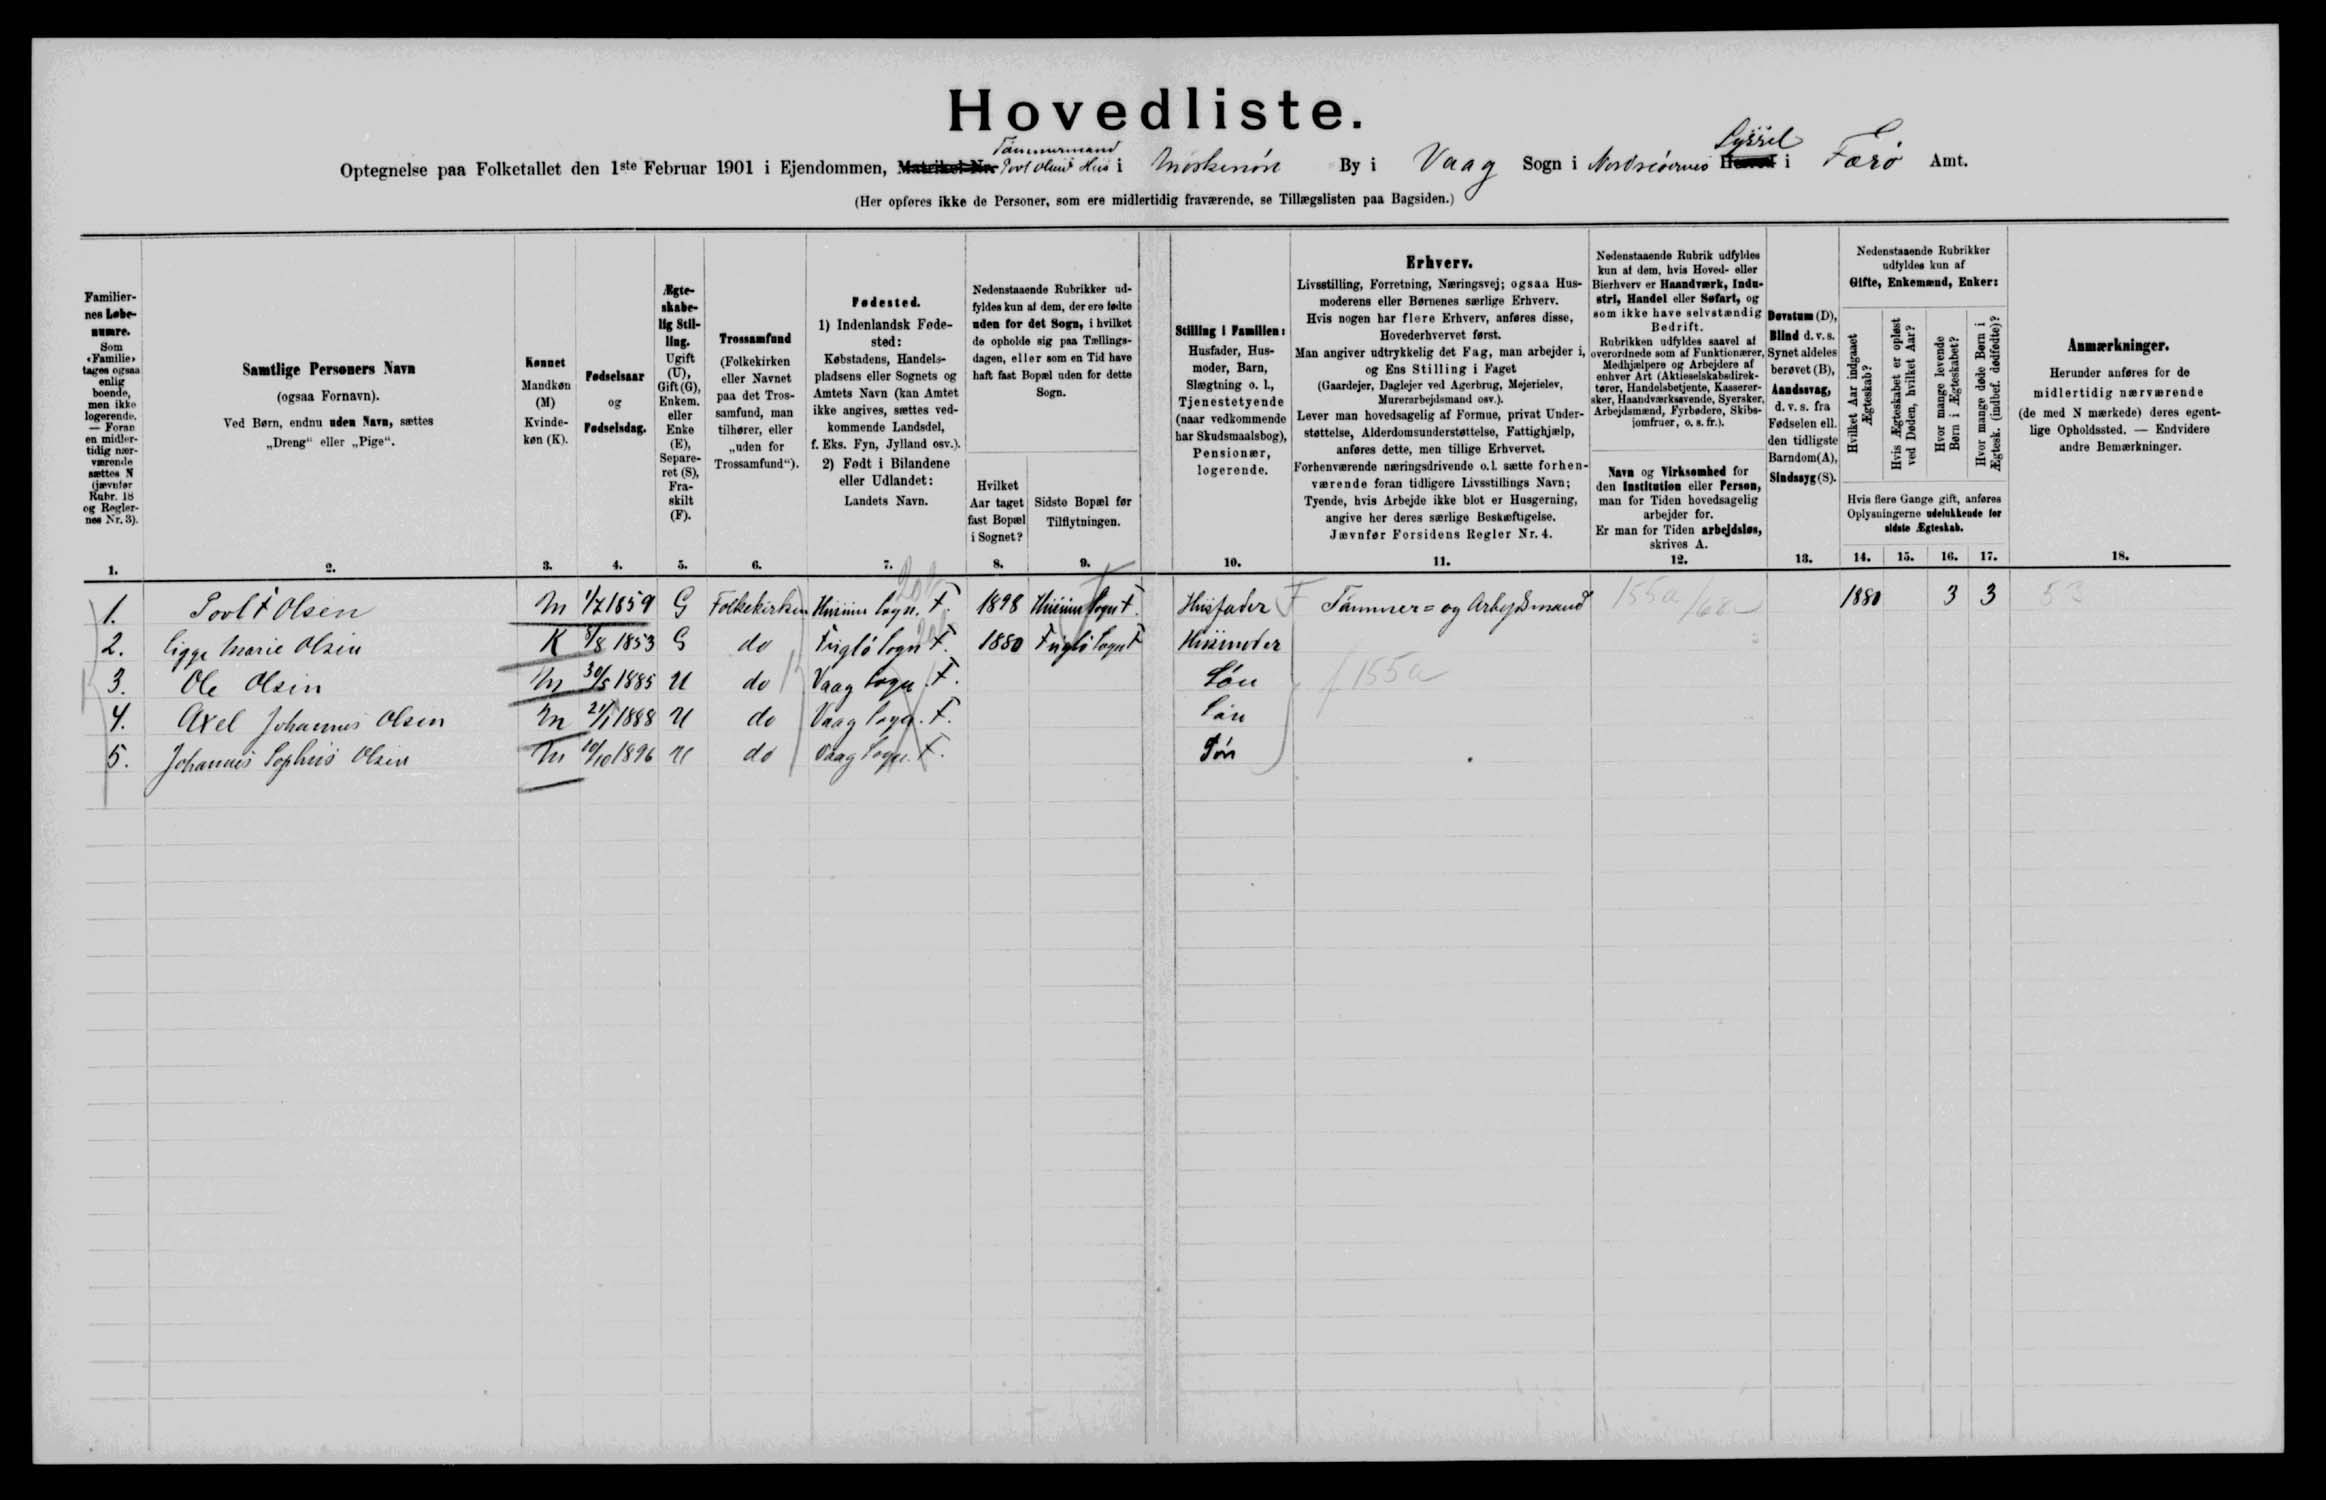 Hovedliste.
Optegnelse paa Folketallet den 1ste Februar 1901 i Ejendommen, Matrikel Nr. Tömmermand Povl Olsens Hus i By i Vaag Sogn i Norderöernes Herred Syssel i Færö Amt.
(Her opføres ikke de Personer, som ere midlertidig fraværende, se Tillægslisten paa Bagsiden.)
Familiernes Løbenumre.
Som «Familie» tages ogsaa enlig boende, men ikke logerende. — Foran en midlertidig nærværende sættes N (jævnfør Rubr. 18 og Reglernes Nr. 3).
Samtlige Personers Navn
(ogsaa Fornavn).
Ved Børn, endnu uden Navn, sættes
„Dreng“ eller „Pige“.
Kønnet
Mandkøn (M)
Kvindekøn (K).
Fødselsaar
og
Fødselsdag.
Ægteskabelig Stilling.
Ugift (U), Gift (G), Enkem. eller Enke (E), Separeret (S), Fraskilt (F).
Trossamfund
(Folkekirken eller Navnet paa det Trossamfund, man tilhører, eller „uden for Trossamfund“).
Fødested.
1) Indenlandsk Fødested:
Købstadens, Handelspladsens eller Sognets og Amtets Navn (kan Amtet ikke angives, sættes vedkommende Landsdel, f. Eks. Fyn, Jylland osv.).
2) Født i Bilandene eller Udlandet:
Landets Navn.
Nedenstaaende Rubrikker udfyldes kun af dem, der ere fødte uden for det Sogn, i hvilket de opholde sig paa Tællingsdagen, eller som en Tid have haft fast Bopæl uden for dette Sogn.
Hvilket Aar taget fast Bopæl i Sognet?
Sidste Bopæl før Tilflytningen.
Stilling i Familien:
Husfader, Husmoder, Barn, Slægtning o. l., Tjenestetyende (naar vedkommende har Skudsmaalsbog), Pensionær, logerende.
Erhverv.
Livsstilling, Forretning, Næringsvej; ogsaa Husmoderens eller Børnenes særlige Erhverv.
Hvis nogen har flere Erhverv, anføres disse, Hovederhvervet først.
Man angiver udtrykkelig det Fag, man arbejder i, og Ens Stilling i Faget
(Gaardejer, Daglejer ved Agerbrug, Mejerielev, Murerarbejdsmand osv.).
Lever man hovedsagelig af Formue, privat Understøttelse, Alderdomsunderstøttelse, Fattighjælp, anføres dette, men tillige Erhvervet.
Forhenværende næringsdrivende o. l. sætte forhenværende foran tidligere Livsstillings Navn;
Tyende, hvis Arbejde ikke blot er Husgerning, angive her deres særlige Beskæftigelse.
Jævnfør Forsidens Regler Nr. 4.
Nedenstaaende Rubrik udfyldes kun af dem, hvis Hoved- eller Bierhverv er Haandværk, Industri, Handel eller Søfart, og som ikke have selvstændig Bedrift.
Rubrikken udfyldes saavel af overordnede som af Funktionærer, Medhjælpere og Arbejdere af enhver Art (Aktieselskabsdirektører, Handelsbetjente, Kasserersker, Haandværkssvende, Syersker, Arbejdsmænd, Fyrbødere, Skibsjomfruer, o. s. fr.).
Navn og Virksomhed for den Institution eller Person, man for Tiden hovedsagelig arbejder for.
Er man for Tiden arbejdsløs, skrives A.
Døvstum (D), Blind d. v. s. Synet aldeles berøvet (B), Aandssvag, d. v. s. fra Fødselen ell. den tidligste Barndom (A), Sindssyg (S).
Nedenstaaende Rubrikker udfyldes kun af
Gifte, Enkemænd, Enker:
Hvilket Aar indgaaet Ægteskab?
Hvis Ægteskabet er opløst ved Døden, hvilket Aar?
Hvor mange levende Børn i Ægteskabet?
Hvor mange døde Børn i Ægtesk. (indbef. dødfødte)?
Hvis flere Gange gift, anføres Oplysningerne udelukkende for sidste Ægteskab.
Anmærkninger.
Herunder anføres for de midlertidig nærværende (de med N mærkede) deres egentlige Opholdssted. — Endvidere andre Bemærkninger.
1. 2. 3. 4. 5. 6. 7. 8. 9. 10. 11. 12. 13. 14. 15. 16. 17. 18.
1. Povl Olsen M 1/7 1859 G Folkekirken Husum Sogn. F. 1898 Husum Sogn F. Husfader F Tømmer= og Arbejdsmand 155a 1880 3 3
2. Marie Olsen K 1/8 1853 G do Fuglö Sogn F. 1880 Fuglö Sogn F Husmoder
3. Ole Olsen M 30/5 1885 U do Vaag Sogn F. Sön 155a
4. Axel Johannes Olsen M 21/1 1888 U do Vaag Sogn. F. Sön
5. Johannes Sophus Olsen M 10/10 1896 U do Vaag Sogn. F. Sön